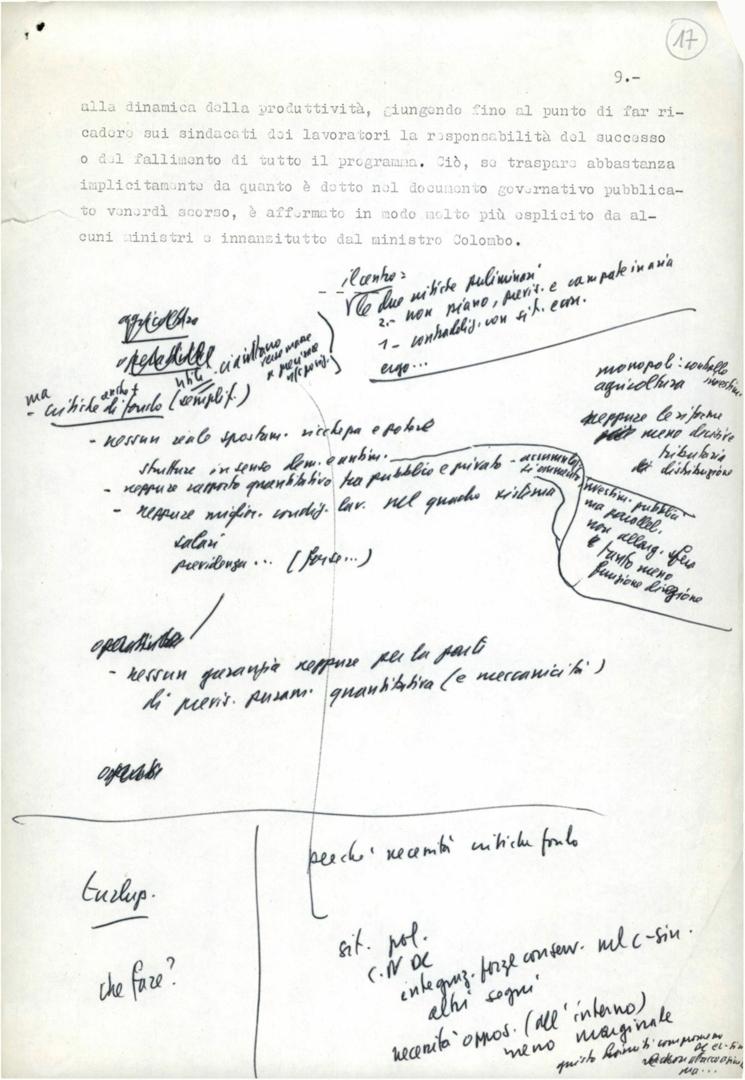 17
9.-
alla dinamica della produttività, giungendo fino al punto di far ri-
cadere sui sindacati dei lavoratori la responsabilità del successo
o del fallimento di tutto il programma. Ciò, se traspare abbastanza
implicitamente da quanto è detto nel documento governativo pubblica-
to venerdì scorso, è affermato in modo molto più esplicito da al-
cuni ministri e innanzitutto dal ministro Colombo.
il centro:
le due critiche preliminari
2.- non piano, previs. e campate in aria
1- contraddiz. con sit. econ.
ergo...
agricoltura
monopoli: controllo
agricoltura investim.
neppure le riforme
meno decisive
tributaria
di distribuzione
ma
anche
- critiche di fondo (semplif.)
- nessun reale spostam. ricchezza e potere
strutture in senso dem. e antim.
- neppure rapporto quantitativo tra pubblico e privato -
- neppure miglior. condiz. lav. nel quadro sistema
salari
previdenza... (forse...)
investim. pubblici
ma parallel.
non allarg. sfera
e tanto meno
funzione direzione
- nessun garanzia neppure per la parte
di previs. puram. quantitativa (e meccanicità)
operai
perché necessità critiche fondo
che fare?
sit. pol.
C.N DC
integraz. forze conserv. nel c-sin.
altri segni
necessità oppos. (all'interno)
meno marginale
ma...